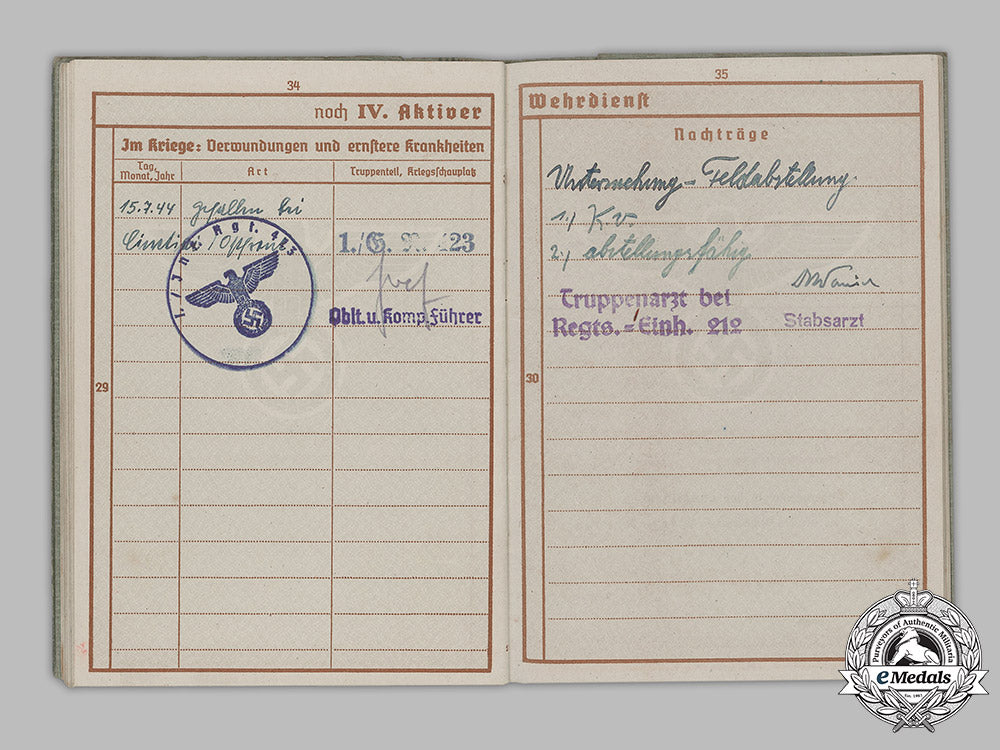 34
noch IV. Aktiver
Im Kriege: Verwundungen und ernstere Krankheiten
Tag, Monat, Jahr
Art
Truppenteil, Kriegsschauplatz
15.7.44 gefallen bei
/Ostfront
1./G. R. 423
Oblt. u. Komp. Führer
29
35
Wehrdienst
Nachträge
Untersuchung - Feldabstellung.
1.) Kv
2.) abstellungsfähig
Truppenarzt bei
Regts.=Einh. 212
Stabsarzt
30
Purveyors of Authentic Militaria
eMedals